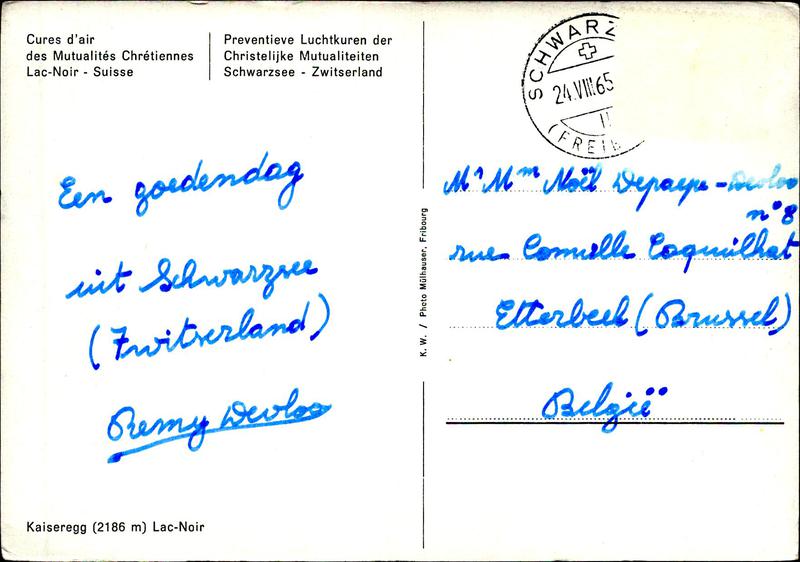 Cures d'air
des Mutualités Chrétiennes
Lac-Noir - Suisse
Preventieve Luchtkuren der
Christelijke Mutualiteiten
Schwarzsee - Zwitserland
SCHWARZ
24.VIII.65
(FREIB
Een goedendag
uit Schwarzsee
(Zwitserland)
Remy Devloo
Kaiseregg (2186 m) Lac-Noir
K. W. / Photo Mülhauser, Fribourg
Mr Mm Noël Depaepe-Devloo
n° 8
rue Comille Coquilhat
Etterbeek (Brussel)
België